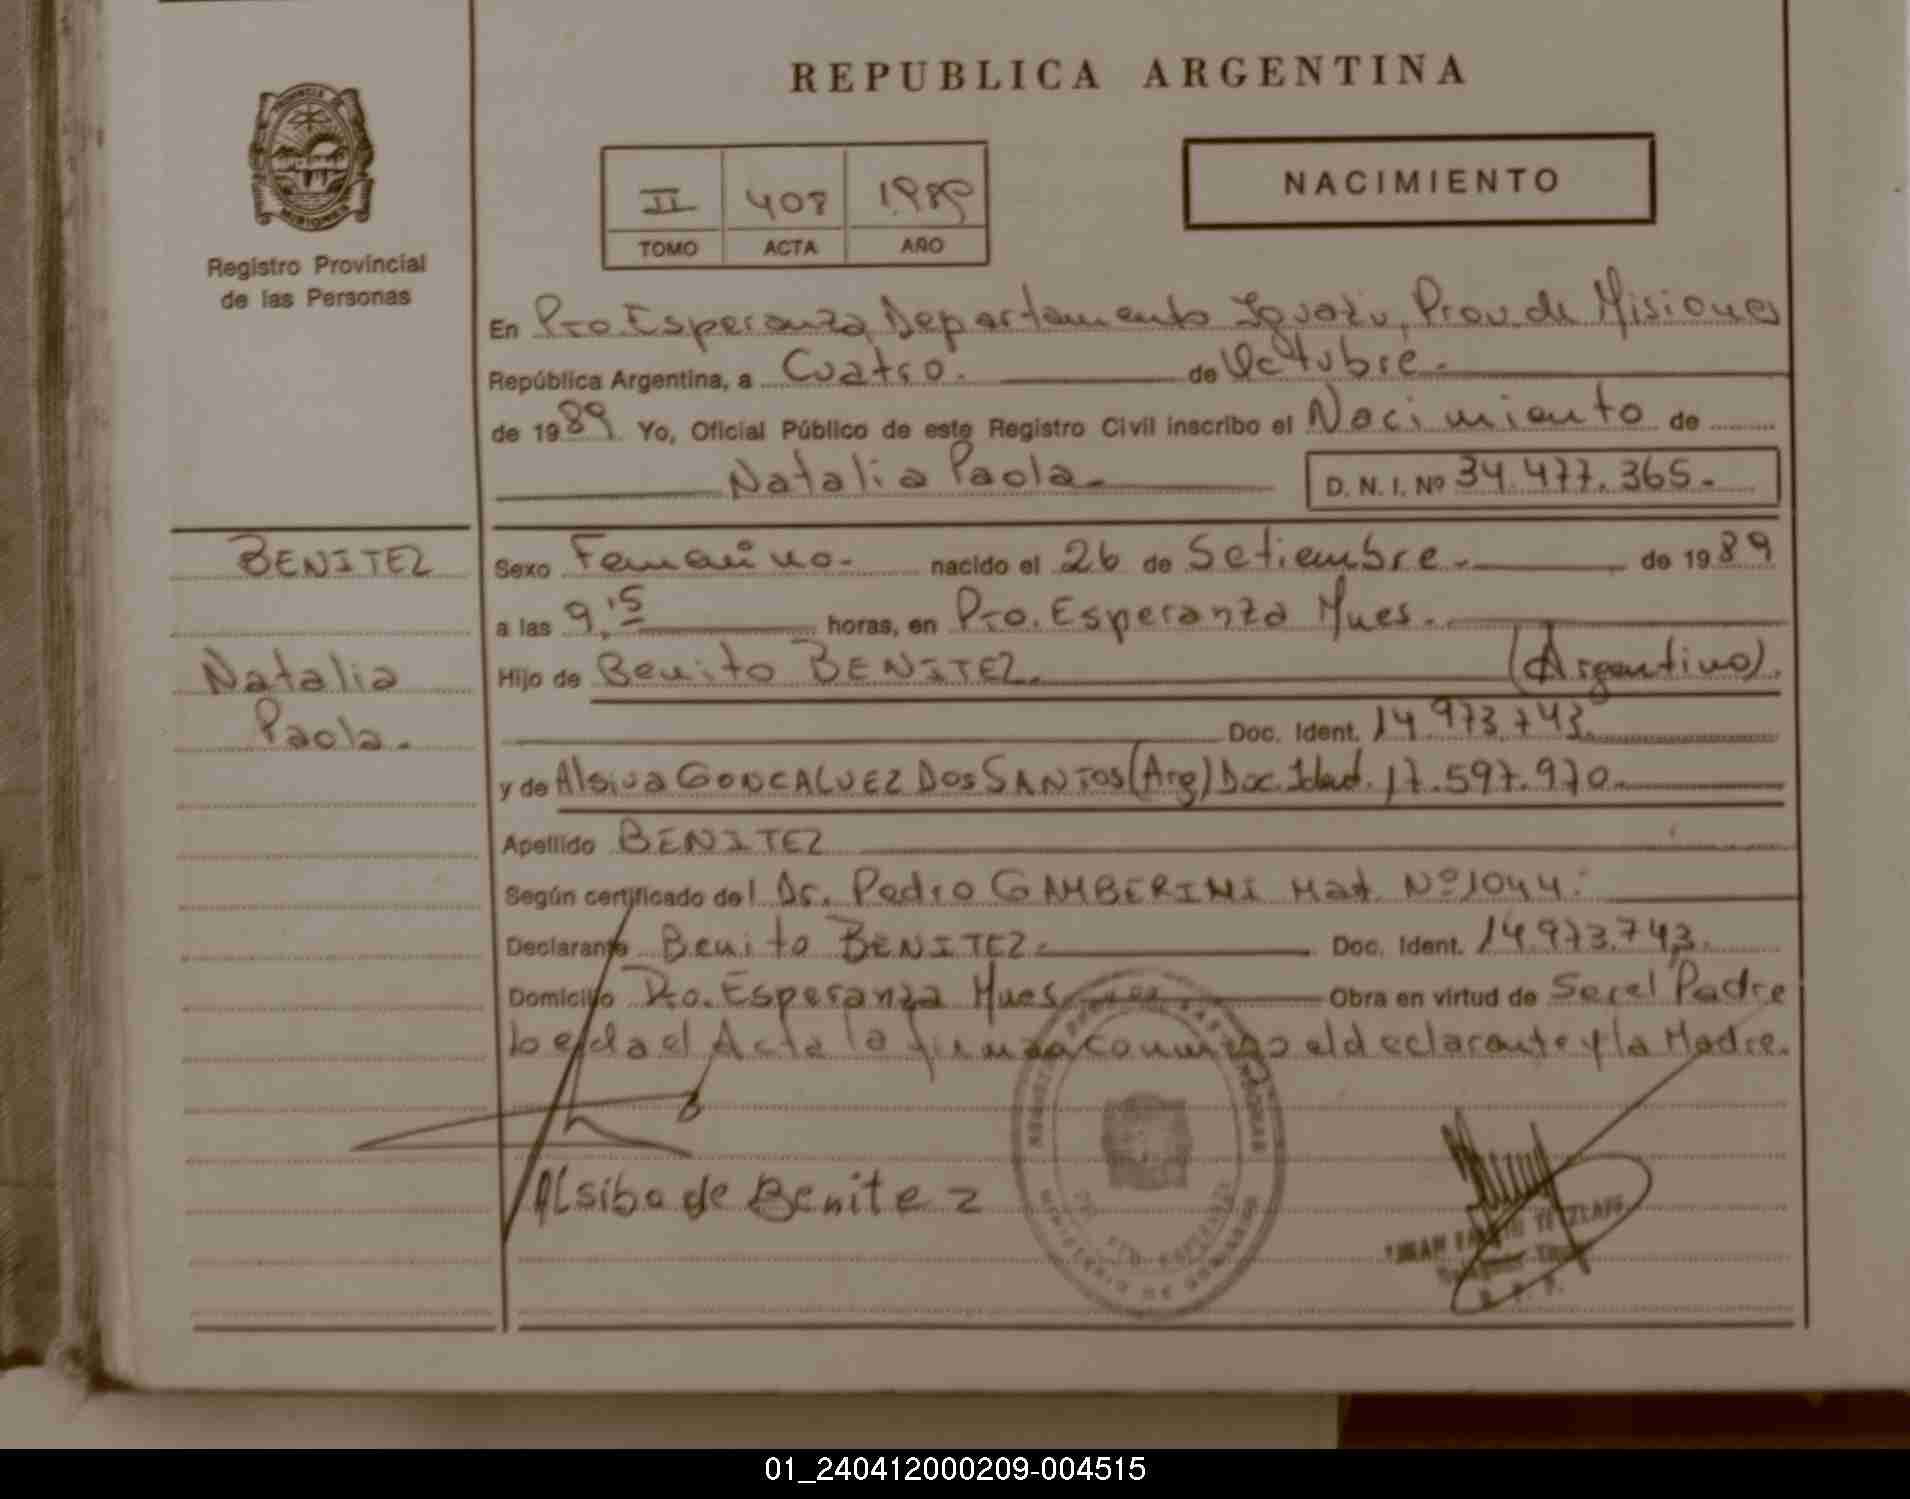 REPUBLICA ARGENTINA
PROVINCIA DE
MISIONES
Registro Provincial
de las Personas
II 408 1989
TOMO ACTA AÑO
NACIMIENTO
En Pto. Esperanza, Departamento Iguazu, Prov. de Misiones
República Argentina, a Cuatro.- de Octubre.-
de 1989 Yo, Oficial Público de este Registro Civil inscribo el Nacimiento de
Natalia Paola.- D. N. I. Nº 34.477.365.-
BENITEZ
Natalia
Paola.-
Sexo Femenino.- nacido el 26 de Setiembre.- de 1989
a las 9,15 horas, en Pto. Esperanza Mnes.-
Hijo de Benito BENITEZ.- (Argentino).
Doc. Ident. 14.973.743.
y de Alsiva GONCALVEZ DOS SANTOS (Arg) Doc. Idad. 17.597.970.-
Apellido BENITEZ
Según certificado del Dr. Pedro GAMBERINI Mat. Nº 1044.-
Declarante Benito BENITEZ.- Doc. Ident. 14.973.743.
Domicilio Pto. Esperanza Mnes.- Obra en virtud de Ser el Padre
leida el Acta la firman conmigo el declarante y la Madre.
Alsiba de Benitez
PTO. ESPERANZA
MINISTERIO DE GOBIERNO
01_240412000209-004515